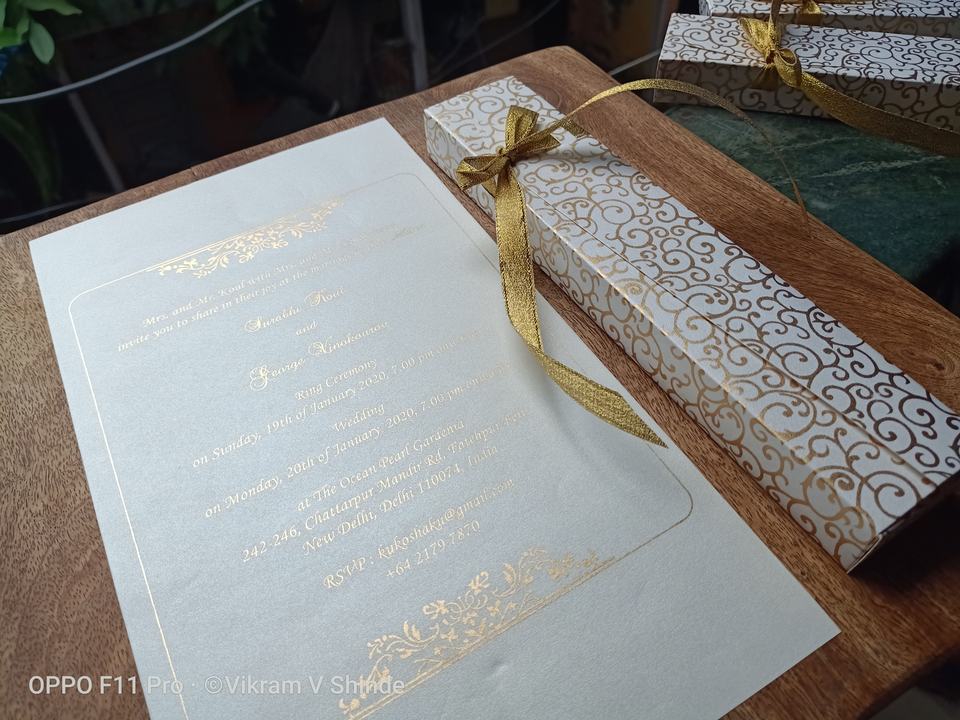 Mrs. and Mr. Koul with Mrs. and
invite you to share in their joy at the
Surabhi Koul
and
George Ninokourou
Ring Ceremony
on Sunday, 19th of January 2020, 7.00 pm
Wedding
on Monday, 20th of January 2020, 7.00 pm
at The Ocean Pearl Gardenia
242-246, Chattarpur Mandir Rd, Fatehpur Beri
New Delhi, Delhi 110074, India
RSVP : kukoshaku@gmail.com
+64 2179 7870
OPPO F11 Pro · ©Vikram V Shinde